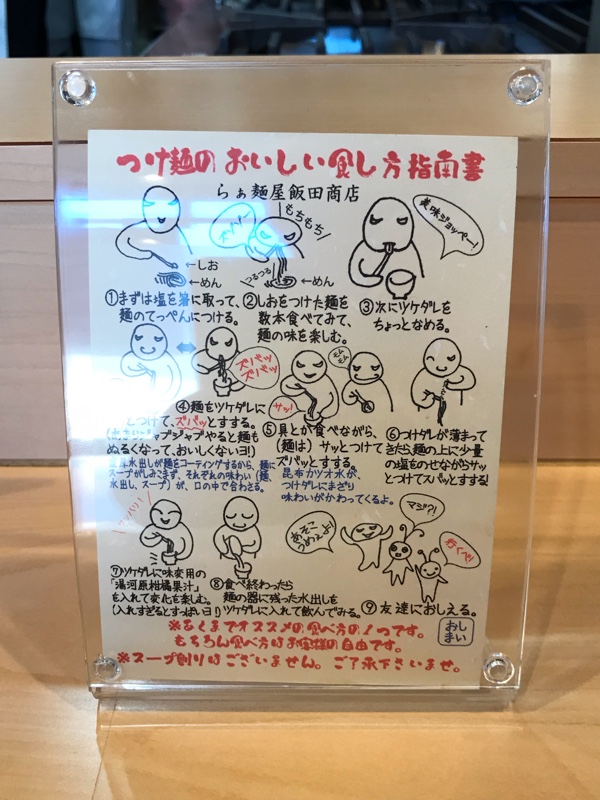 つけ麺のおいしい食し方指南書
らぁ麺屋飯田商店
もちもち
←しお
←めん
つるつる
←めん
美味ジョッペー!
①まずは塩を箸に取って、
麺のてっぺんにつける。
②しおをつけた麺を
数本食べてみて、
麺の味を楽しむ。
③次にツケダレを
ちょっとなめる。
ズバッ
ズバッ
サッ!
④麺をツケダレに
とつけて、ズバッとすする。
ジャブジャブやると麺も
ぬるくなって、おいしくないヨ!)
水出しが麺をコーティングするから、麺に
スープがしみこまず、それぞれの味わい(麺、
水出し、スープ)が、口の中で合わさる。
⑤具とか食べながら、
(麺は)サッとつけて
ズバッとすする。
昆布カツオ水が、
つけダレにまざり
味わいがかわってくるよ。
⑥つけダレが薄まって
きたら麺の上に少量
の塩をのせながらサッ
とつけてズバッとすする!
あそこうめぇよ!
マジ?!
行くべ!
⑦ツケダレに味変用の
「湯河原柑橘果汁」
を入れて変化を楽しむ。
(入れすぎるとすっぱいヨ!)
⑧食べ終わったら
麺の器に残った水出しを
ツケダレに入れて飲んでみる。
⑨友達におしえる。
おしまい
※あくまでオススメの食べ方の1つです。
もちろん食べ方はお客様の自由です。
※スープ割りはございません。ご了承下さいませ。